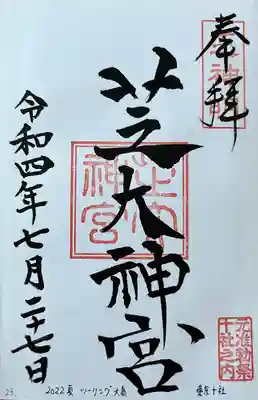 奉拝
芝大神宮
芝大
神宮
元准勅祭
十社之内
令和四年七月二十七日
23. 2022夏 ツーリング 東京十社